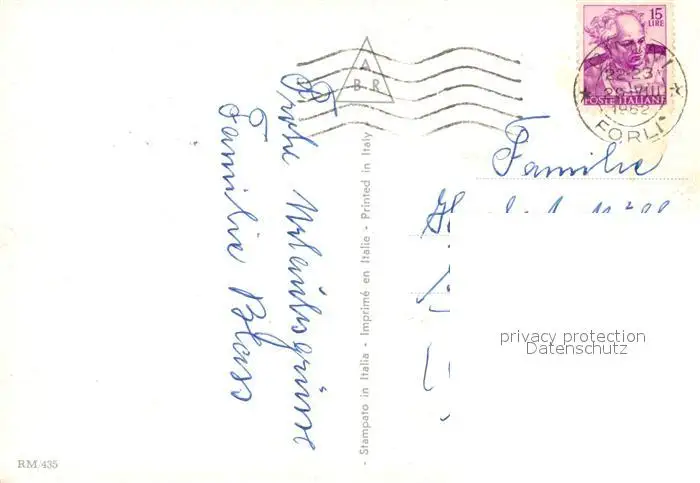 Frohe Urlaubsgrüsse
Familie Blass
- Stampato in Italia - Imprimé en Italie - Printed in Italy
RM/435
A
B R
15
LIRE
POSTE ITALIANE
22-23
28 VIII
1962
FORLI
Familie
privacy protection
Datenschutz